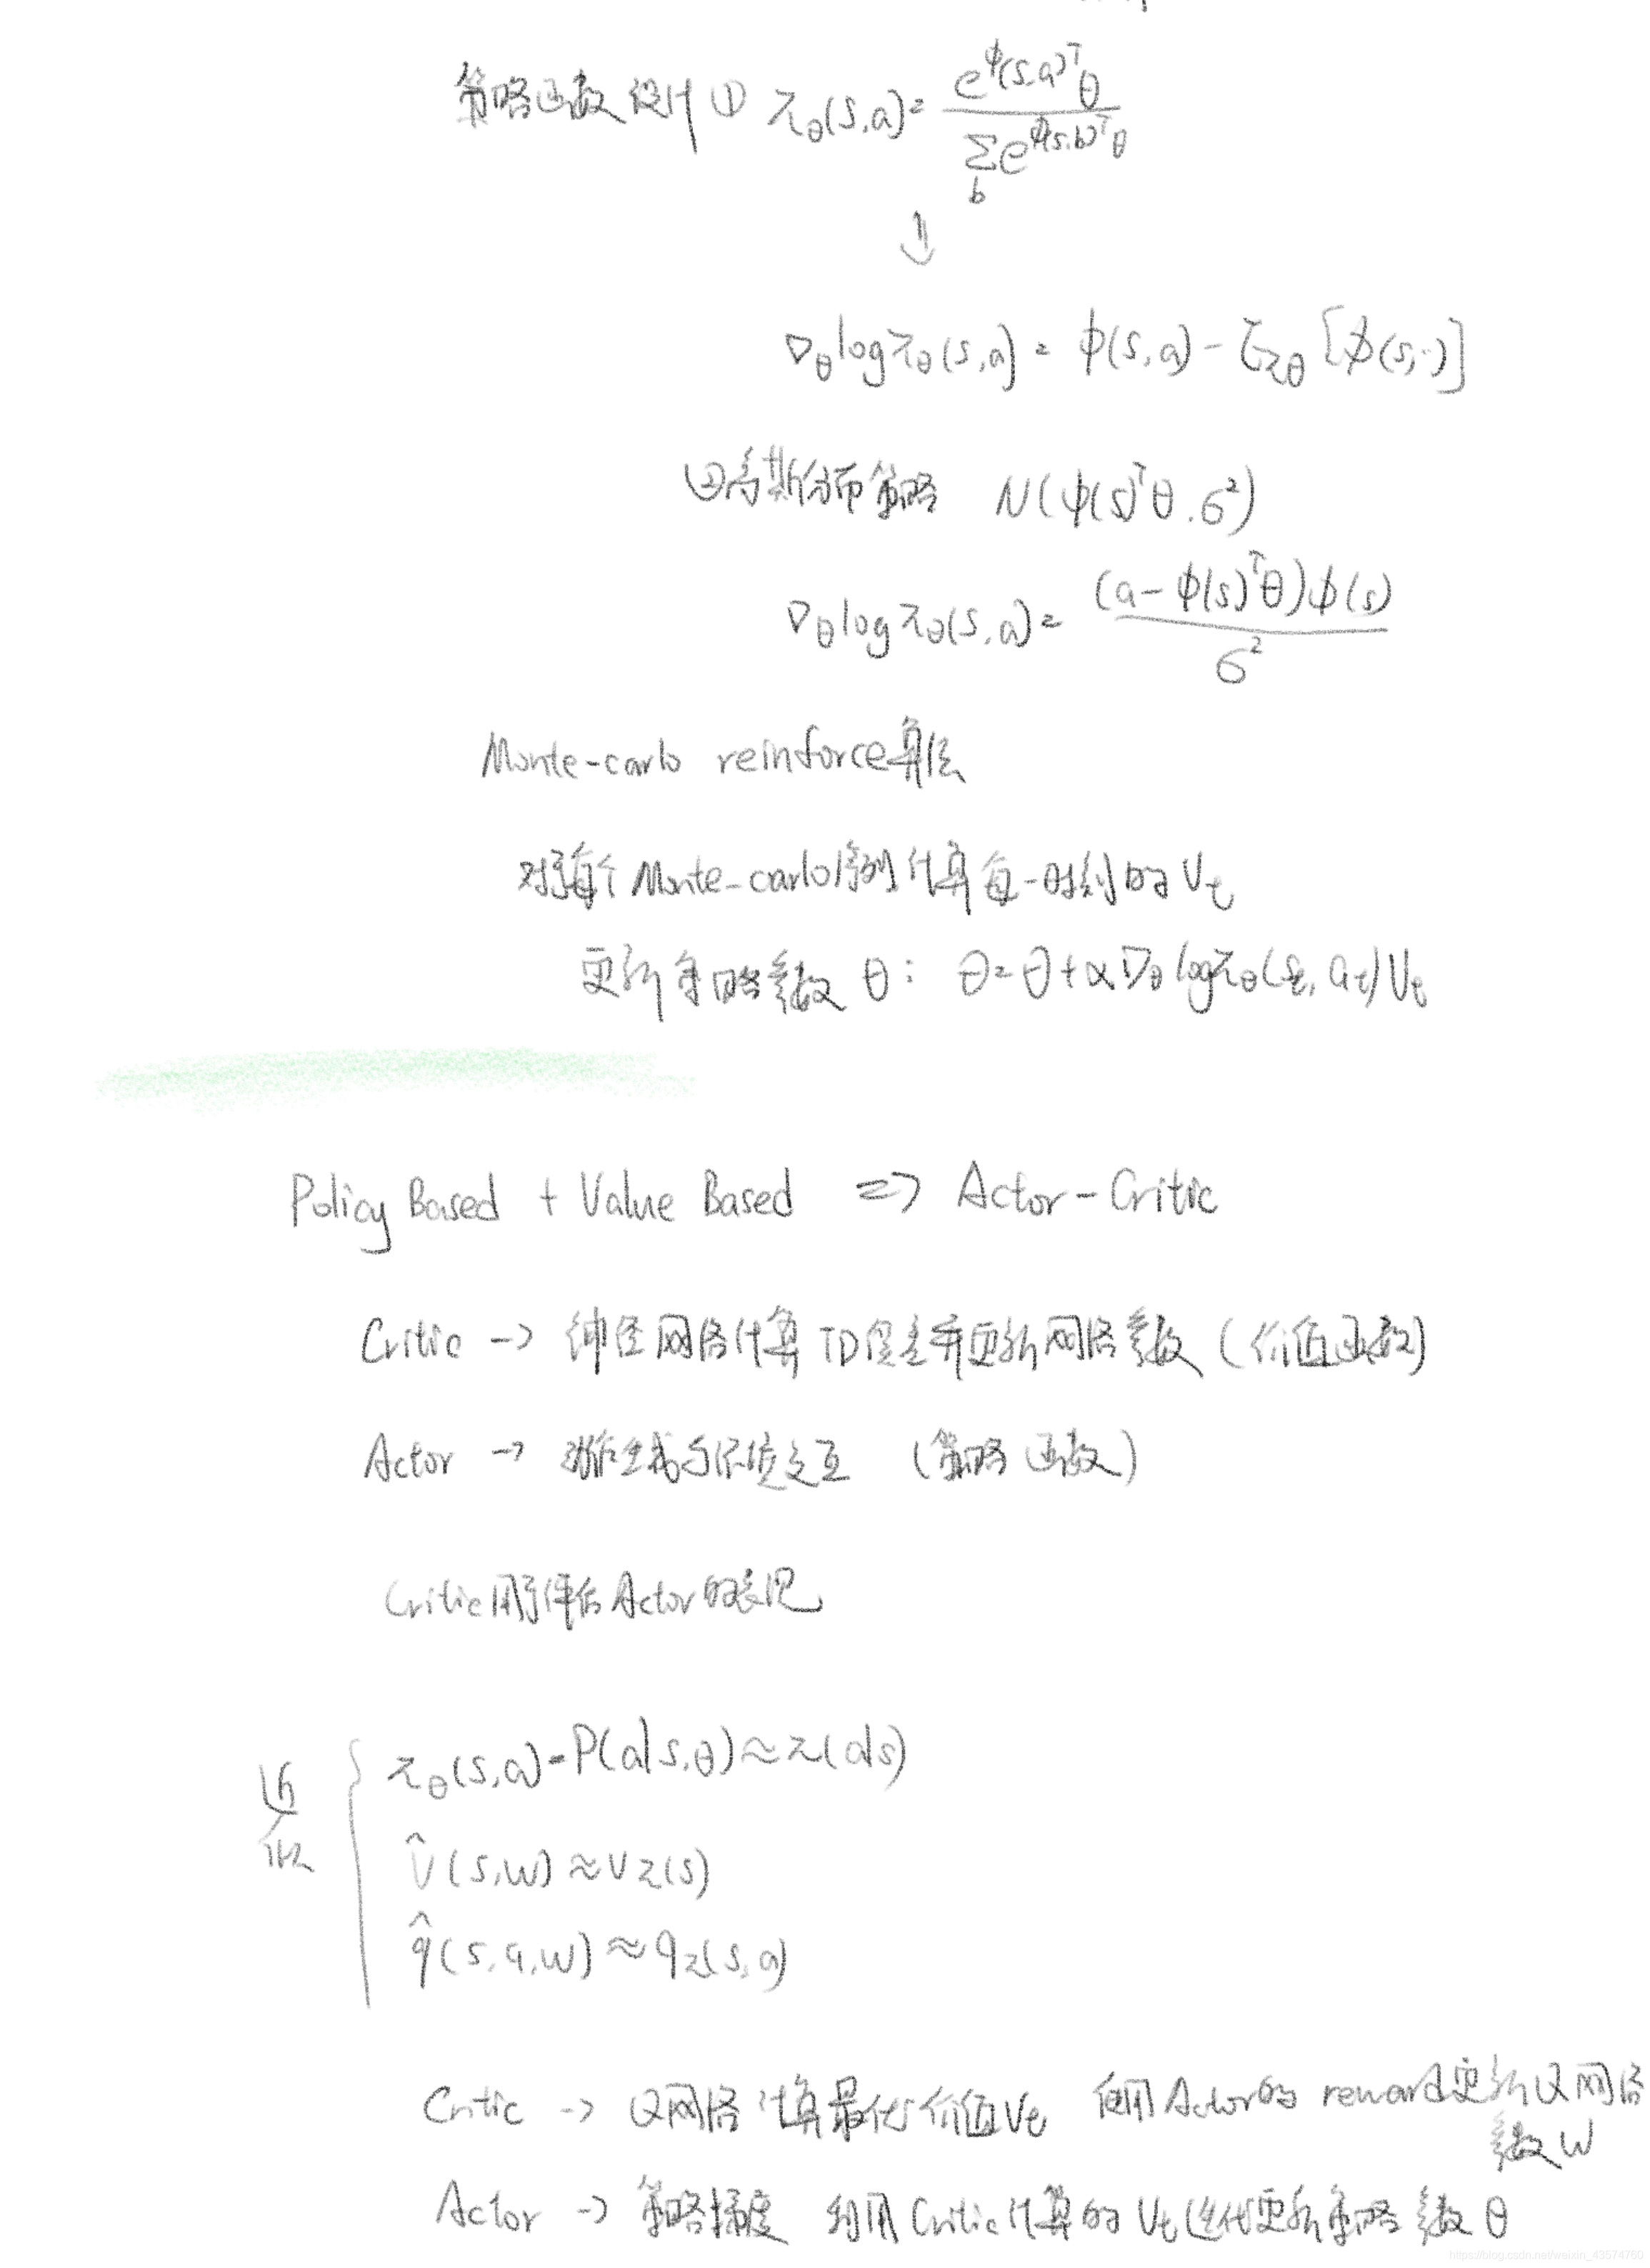 策略函数设计 ① π_θ(s,a) = e^{ϕ(s,a)^T θ} / Σ_b e^{ϕ(s,b)^T θ}
⇓
∇_θ log π_θ(s,a) = ϕ(s,a) - E_{π_θ}[ϕ(s,·)]
②高斯分布策略 N(ϕ(s)^T θ, σ²)
∇_θ log π_θ(s,a) = (a - ϕ(s)^T θ)ϕ(s) / σ²
Monte-carlo reinforce算法
对于每个Monte-carlo序列计算每一时刻的 V_t
更新策略参数 θ: θ = θ + α∇_θ log π_θ(s_t, a_t) V_t
Policy Based + Value Based => Actor-Critic
Critic -> 神经网络计算TD误差并更新网络参数 (价值函数)
Actor -> 动作生成与环境交互 (策略函数)
Critic用于评估Actor的表现
π_θ(s,a) = P(a|s,θ) ≈ π(a|s)
v̂(s,w) ≈ v_π(s)
q̂(s,a,w) ≈ q_π(s,a)
Critic -> Q网络 计算最优价值V_t 使用Actor的 reward更新Q网络
参数 w
Actor -> 策略梯度 利用Critic计算的 V_t 迭代更新策略参数 θ
https://blog.csdn.net/weixin_43674760